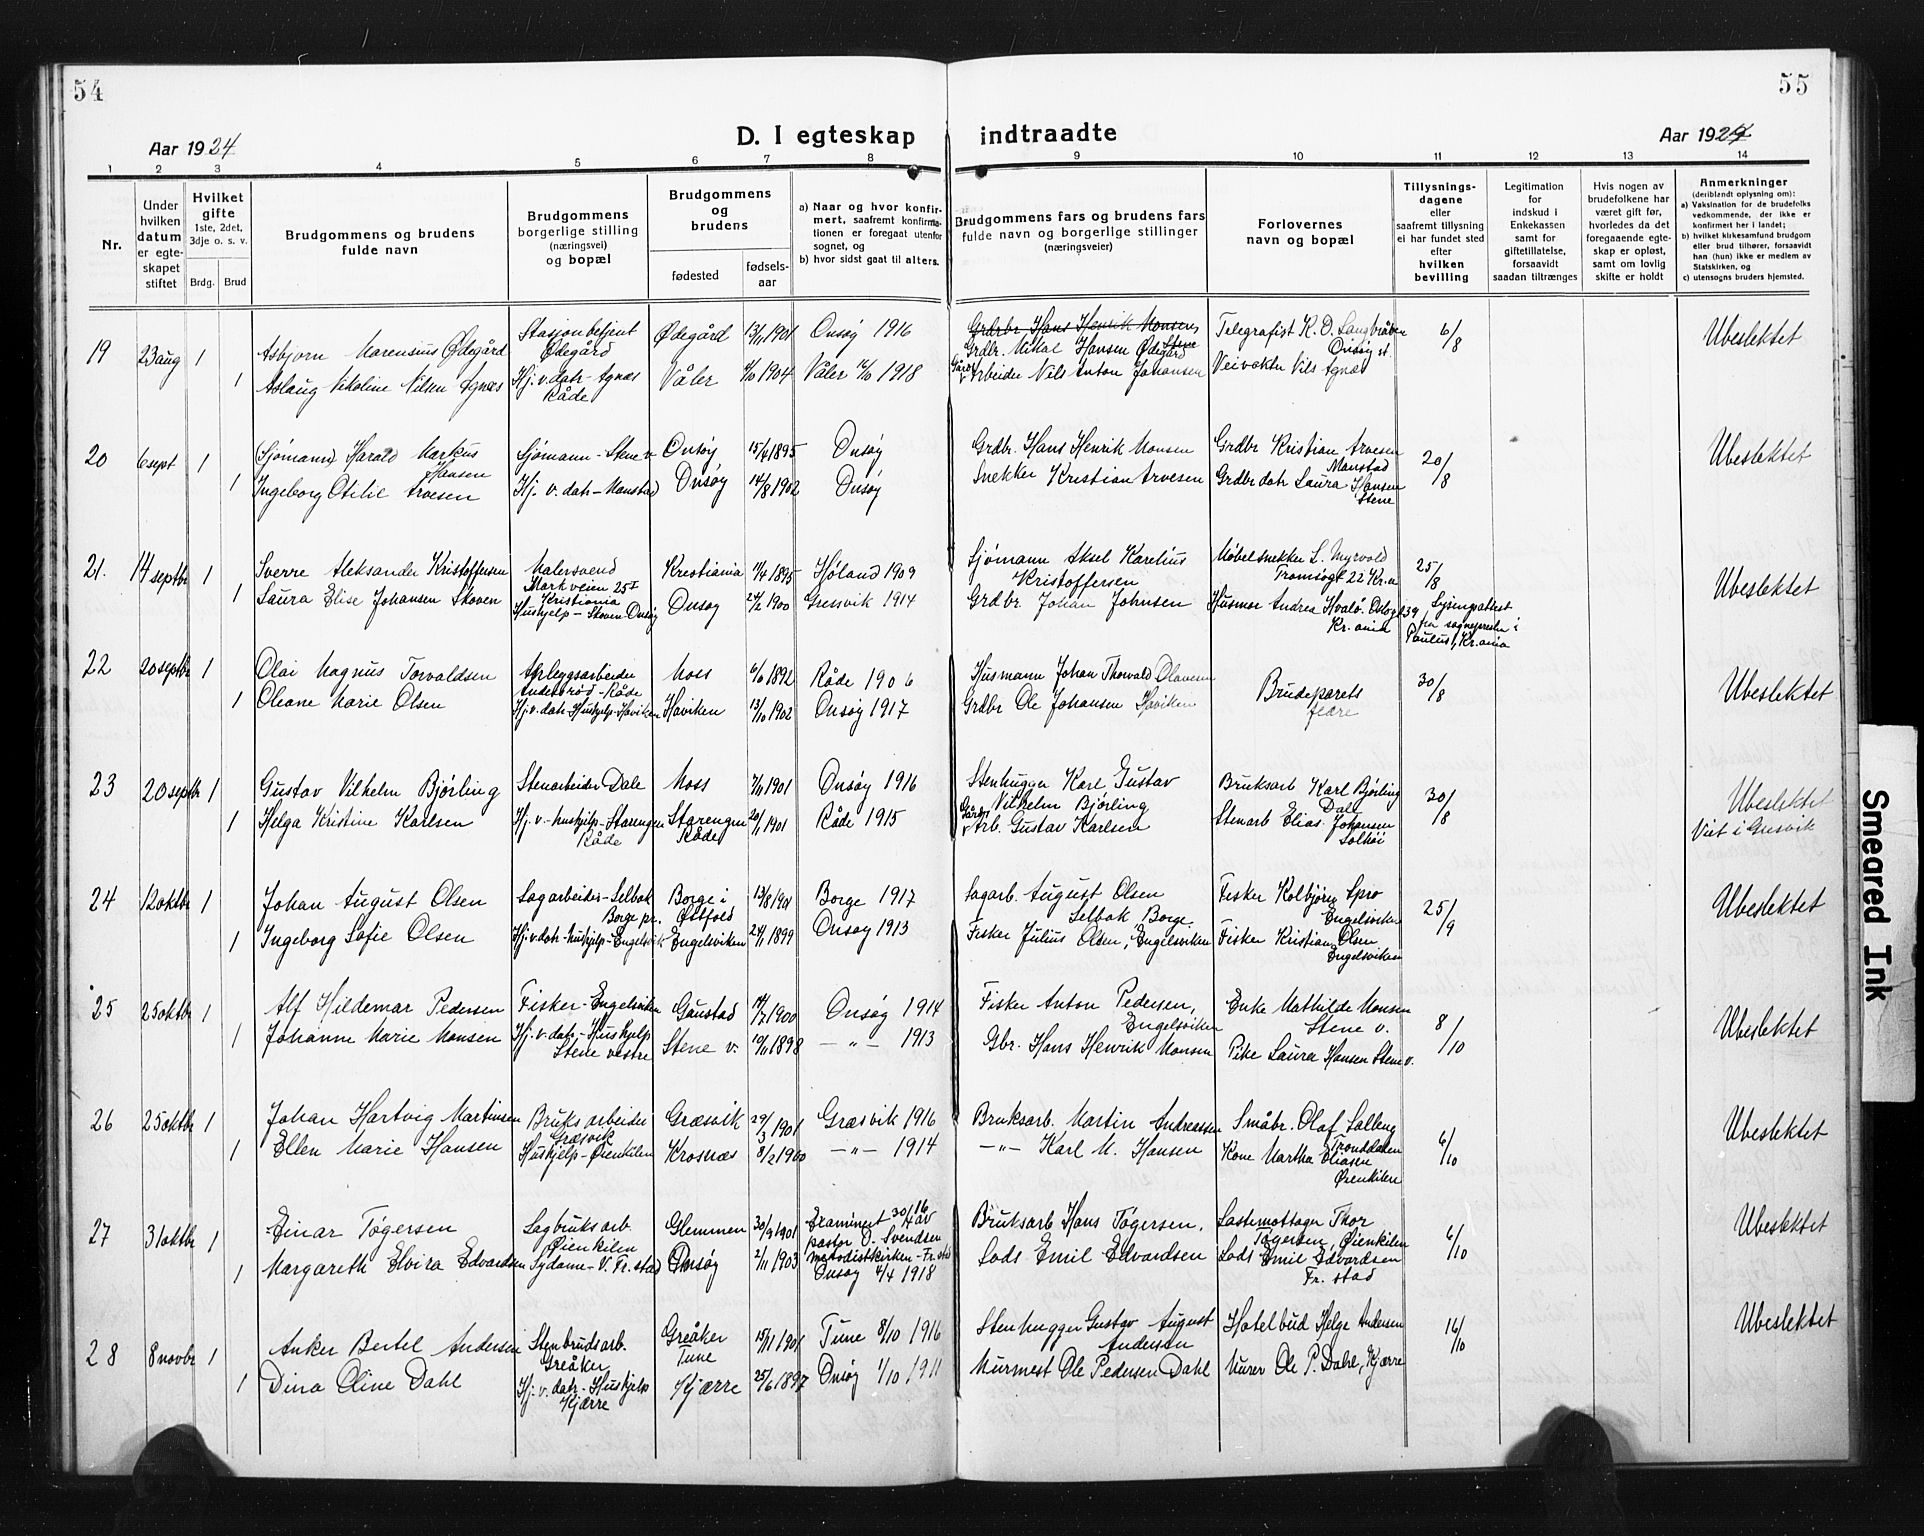 54
55
Aar 1924
D. I egteskap indtraadte
Aar 1924
1 2 3 4 5 6 7 8 9 10 11 12 13 14
Nr.
Under hvilken datum er egteskapet stiftet
Hvilket gifte 1ste, 2det, 3dje o. s. v.
Brdg. Brud
Brudgommens og brudens fulde navn
Brudgommens borgerlige stilling (næringsvei) og bopæl
Brudgommens og brudens
fødested
fødselsaar
a) Naar og hvor konfirmert, saafremt konfirmationen er foregaat utenfor sognet, og
b) hvor sidst gaat til alters.
Brudgommens fars og brudens fars fulde navn og borgerlige stillinger (næringsveier)
Forlovernes navn og bopæl
Tillysningsdagene eller saafremt tillysning ei har fundet sted efter hvilken bevilling
Legitimation for indskud i Enkekassen samt for giftetillatelse, forsaavidt saadan tiltrænges
Hvis nogen av brudefolkene har været gift før, hvorledes da det foregaaende egteskap er opløst, samt om lovlig skifte er holdt
Anmerkninger
(deriblandt oplysning om):
a) Vaksination for de brudefolks vedkommende, der ikke er konfirmert her i landet;
b) hvilket kirkesamfund brudgom eller brud tilhører, forsaavidt han (hun) ikke er medlem av Statskirken, og
c) utensogns bruders hjemsted.
19 23 aug 1 Asbjørn Marensius Ødegård Stasjonbetjent Ødegård Ødegård 13/11 1901 Onsøy 1916 Grdbr. Hans Henrik Monsen, Stene Grdbr. Mikal Hansen Ødegård Telegrafist K. O. Langbråten Onsøy st. 6/8 Ubeslektet
1 Aslaug Nikoline Nilsen Agnæs Hj. v. datr Agnæs Råde Våler 1904 Våler 1918 Gårdb. v Arbeider Nils Anton Johansen Veivokter Nils Agnæs
20 6 sept 1 (Sjømann) Harald Markus Hansen Sjømann - Stene v. Onsøy 15/4 1895 Onsøy Grdbr. Hans Henrik Monsen Grdbr Kristian Arvesen Manstad 20/8 Ubeslektet
1 Ingeborg Otilie Arvesen Hj. v. datr - Manstad Onsøy 14/8 1902 Onsøy Snekker Kristian Arvesen Grdbr datr Laura Hansen Stene
21. 14 septbr 1 Sverre Aleksander Kristoffersen Malersvend Markveien 25 I Kristiania Krestiania 11/4 1895 Høland 1909 Sjømann Aksel Karelius Kristoffersen Møbelsnekker L. Myrvold Tromsøgt 22 Kr.a 25/8 Ubeslektet
1 Laura Elise Johansen Skoven Hushjelp - Skoven Onsøy Onsøy 24/2 1900 Gressvik 1914 Grdbr. Johan Johnsen Husmor Andrea Hvalø. Oslogt 39 Kr.ania Lysingsattest fra sognepresten i Paulus, Kr.ania
22 20 septbr 1 Olai Magnus Torvaldsen Anleggsarbeider Andersrød - Råde Moss 6/6 1892 Råde 1906 Husmann Johan Thorvald Olavesen Brudeparets fedre 30/8 Ubeslektet
1 Oleane Marie Olsen Hj. v. datr - Hushjelp - Håviken Håviken 13/10 1902 Onsøy 1917 Grdbr Ole Johansen Håviken
23 20 septbr 1 Gustav Vilhelm Bjørling Stenarbeider Dale Moss 7/11 1901 Onsøy 1916 Stenhugger Karl Gustav Vilhelm Bjørling Bruksarb Karl Bjørling Dale 30/8 Ubeslektet
1 Helga Kristine Karlsen Hj. v. - hushjelp - Starengen Råde Starengen Råde 20/1 1901 Råde 1915 Gårdbr. v Arb. Gustav Karlsen Stenarb Elias Johansen Solhøi Viet i Gresvik
24 12 oktbr 1 Johan August Olsen Sagarbeider - Selbak Borge pr. Borge i Østfold 13/8 1901 Borge 1917 Sagarb. August Olsen Selbak Borge Fisker Kolbjørn Spro Engelsviken 25/9 Ubeslektet
1 Ingeborg Sofie Olsen Hj. v. datr - hushjelp - Engelsvik Engelsviken 24/11 1899 Onsøy 1913 Fisker Julius Olsen, Engelsviken Fisker Kristian Olsen Engelsviken
25 25 oktbr 1 Alf Hildemar Pedersen Fisker - Engelsviken Gaustad 14/7 1900 Onsøy 1914 Fisker Anton Pedersen, Engelsviken Enke Mathilde Monsen Stene v. 8/10 Ubeslektet
1 Johanne Marie Monsen Hj. v. datr - Hushjelp Stene vestre Stene v. 10/11 1898 — " — 1913 Gbr. Hans Henrik Monsen Pike Laura Hansen Stene v.
26 25 oktbr 1 Johan Hartvig Martinsen Bruksarbeider Græsvik Græsvik 29/3 1901 Græsvik 1916 Bruksarb. Martin Andreassen Småbr. Olaf Solleng Tronddalen 6/10 Ubeslektet
1 Ellen Marie Hansen Hushjelp - Ørenkilen Krosnæs 8/2 1900 — " — 1914 — " — Karl M. Hansen Kone Martha Eliasen Ørenkilen
27 31 oktbr 1 Einar Tøgersen Sagbruksarb. Øienkilen Glemmen 30/9 1901 Examinert 30/4 16 av pastor O. Svendsen metodistkirken - Fr.stad Bruksarb Hans Tøgersen. Lastemottager Thor Tøgersen, Øienkilen 6/10 Ubeslektet
1 Margareth Elvira Edvardsen Sydame - V. Fr.stad Onsøy 2/11 1903 Onsøy 4/4 1918 Lods Emil Edvardsen Lods Emil Edvardsen Fr. stad
28 8 novbr 1 Anker Bertel Andersen Stenbrudsarb. Greåker Greåker Tune 15/1 1901 Tune 8/10 1916 Stenhugger Gustav August Andersen Hotelbud Helge Andersen 16/10 Ubeslektet
1 Dina Oline Dahl Hj. v. datr - Hushjelp Kjærre Kjærre 25/6 1897 Onsøy 1/10 1911 Murmest Ole Pedersen Dahl Murer Ole P. Dahl, Kjærre
Smeared Ink